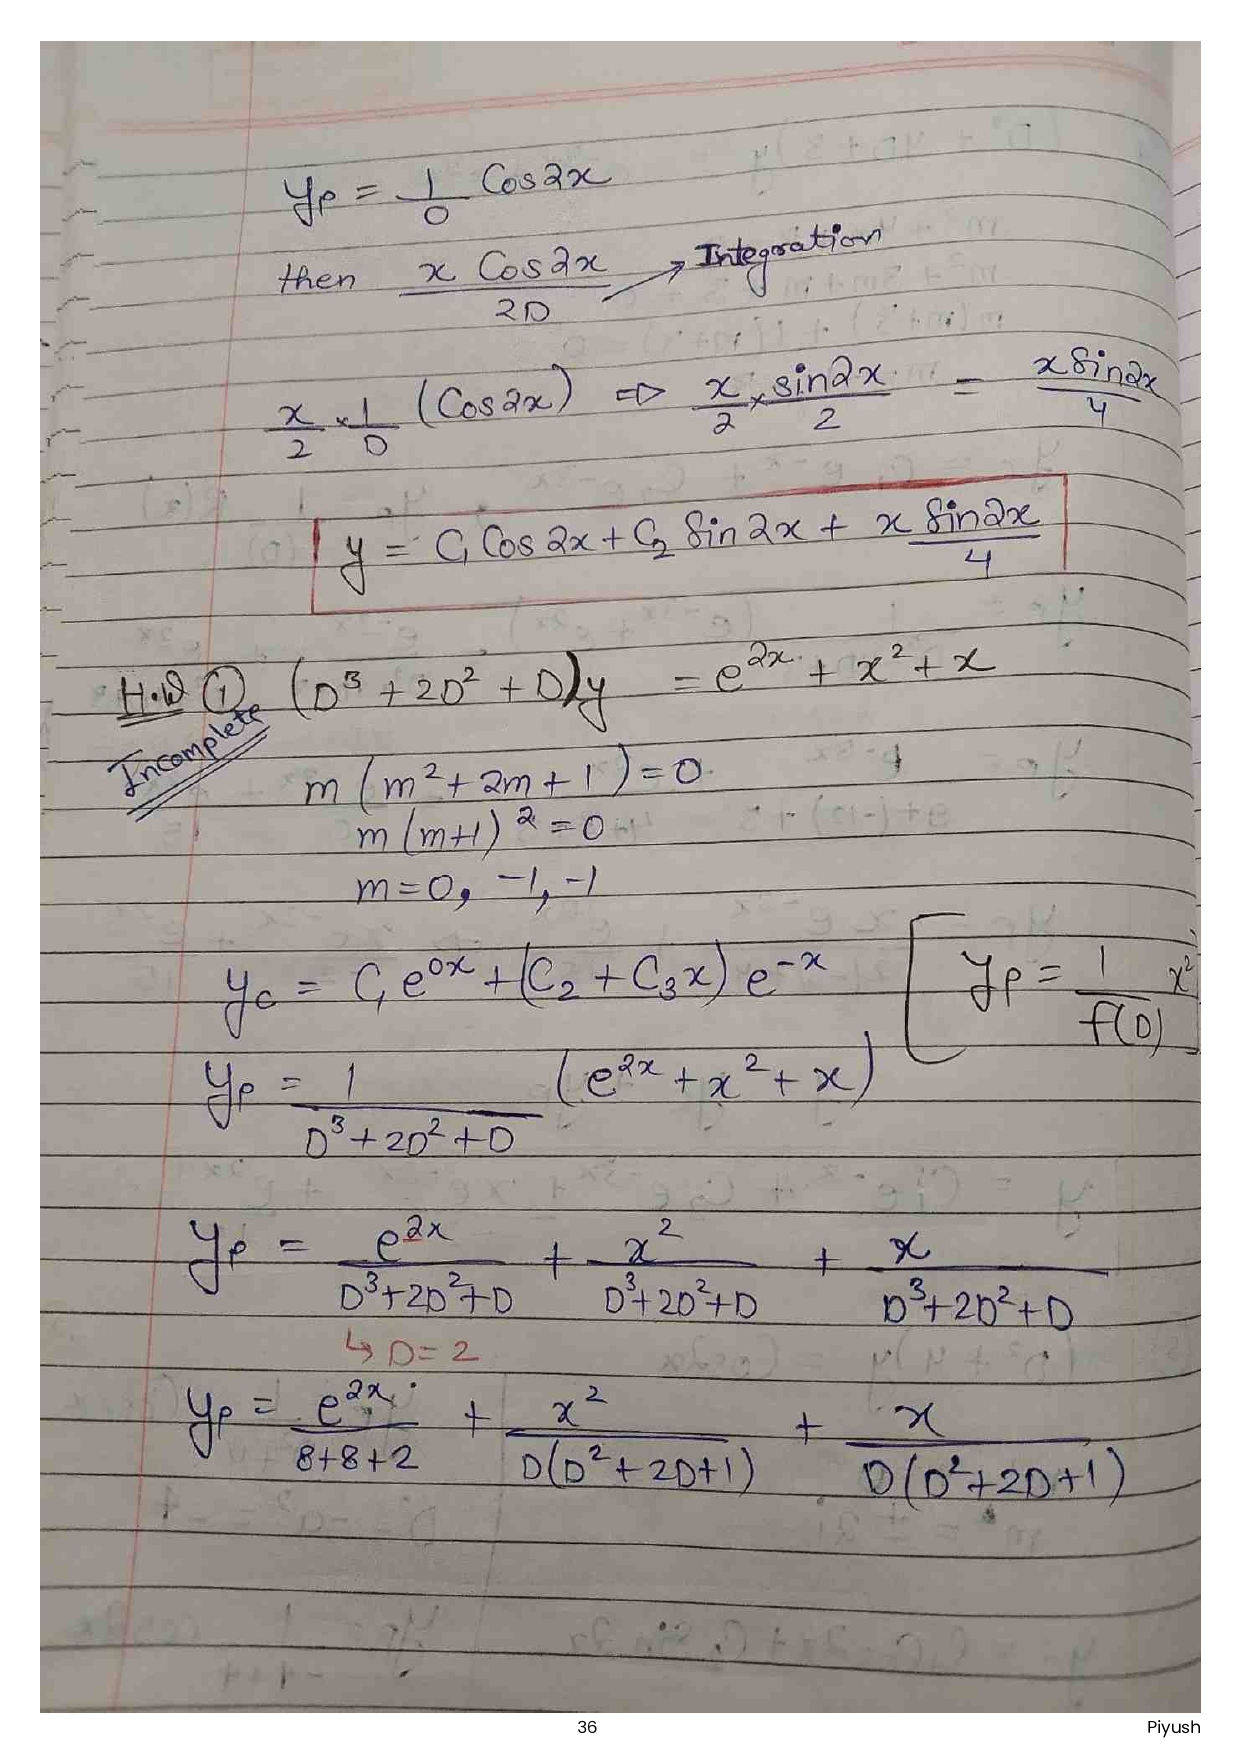 yp = 1/0 Cos2x
then x Cos2x / 2D → Integration
x/2 × 1/D (Cos2x) ⇒ x/2 × sin2x/2 = x Sin2x/4
y = C₁ Cos2x + C₂ Sin2x + x Sin2x/4
H.W ① (D³ + 2D² + D)y = e^2x + x² + x
Incomplete
m(m² + 2m + 1) = 0
m(m+1)² = 0
m = 0, -1, -1
yc = C₁e^0x + (C₂ + C₃x) e^-x [ yp = 1/f(D) x²
yp = 1/(D³ + 2D² + D) (e^2x + x² + x)
yp = e^2x/(D³+2D²+D) + x²/(D³+2D²+D) + x/(D³+2D²+D)
↳ D = 2
yp = e^2x/(8+8+2) + x²/(D(D²+2D+1)) + x/(D(D²+2D+1))
36
Piyush